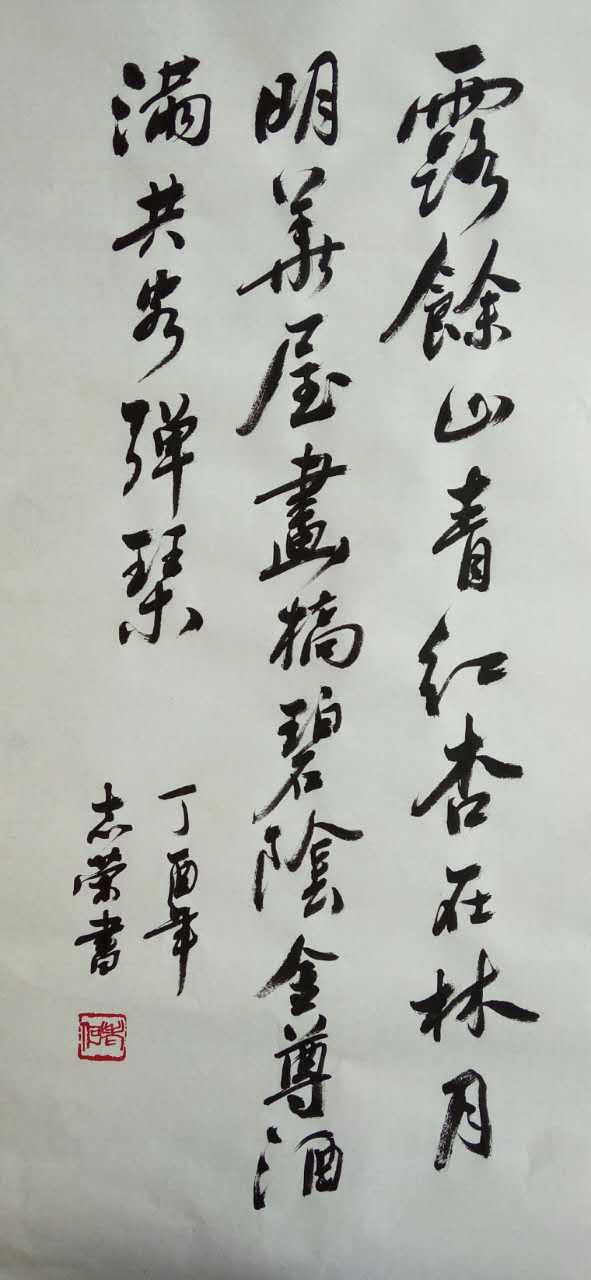 露餘山青红杏在林月
明華屋畫橋碧陰金尊酒
滿共客弹琴
丁酉年
志荣書